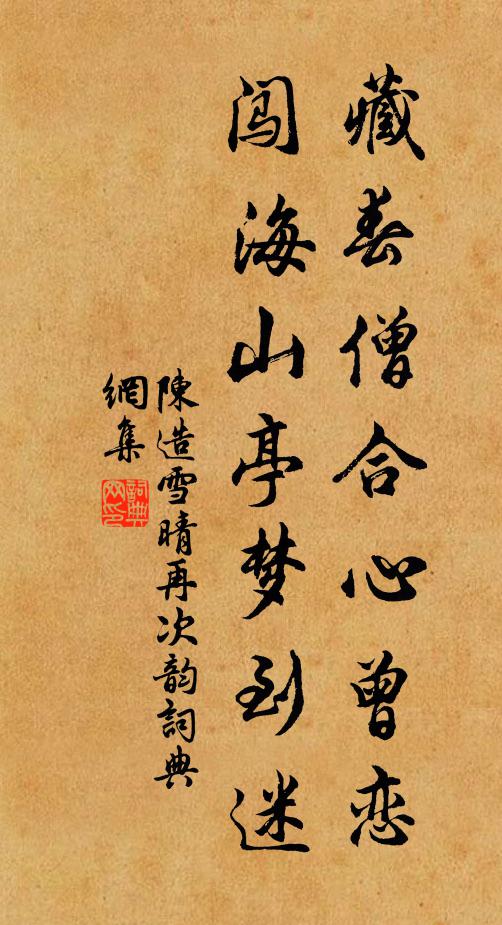 藏春僧合心曾恋
闯海山亭梦到迷
陳造雪晴再次韵詞典
網集
詞典
网印